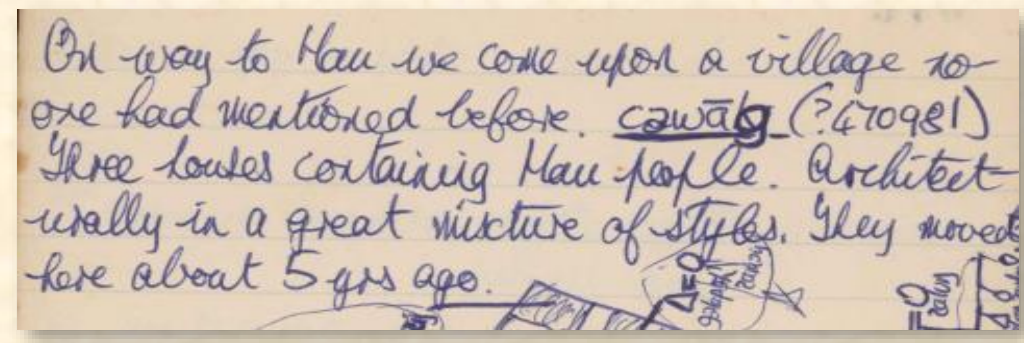 On way to Mau we come upon a village no-
one had mentioned before. cawāg (?470981)
Three houses containing Mau people. Architect-
urally in a great mixture of styles. They moved
here about 5 yrs ago.